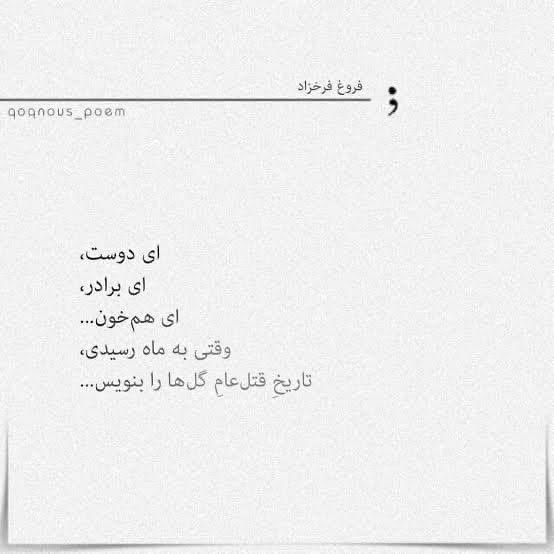 فروغ فرخزاد
;
qoqnous_poem
ای دوست،
ای برادر،
ای هم‌خون...
وقتی به ماه رسیدی،
تاریخِ قتل‌عامِ گل‌ها را بنویس...